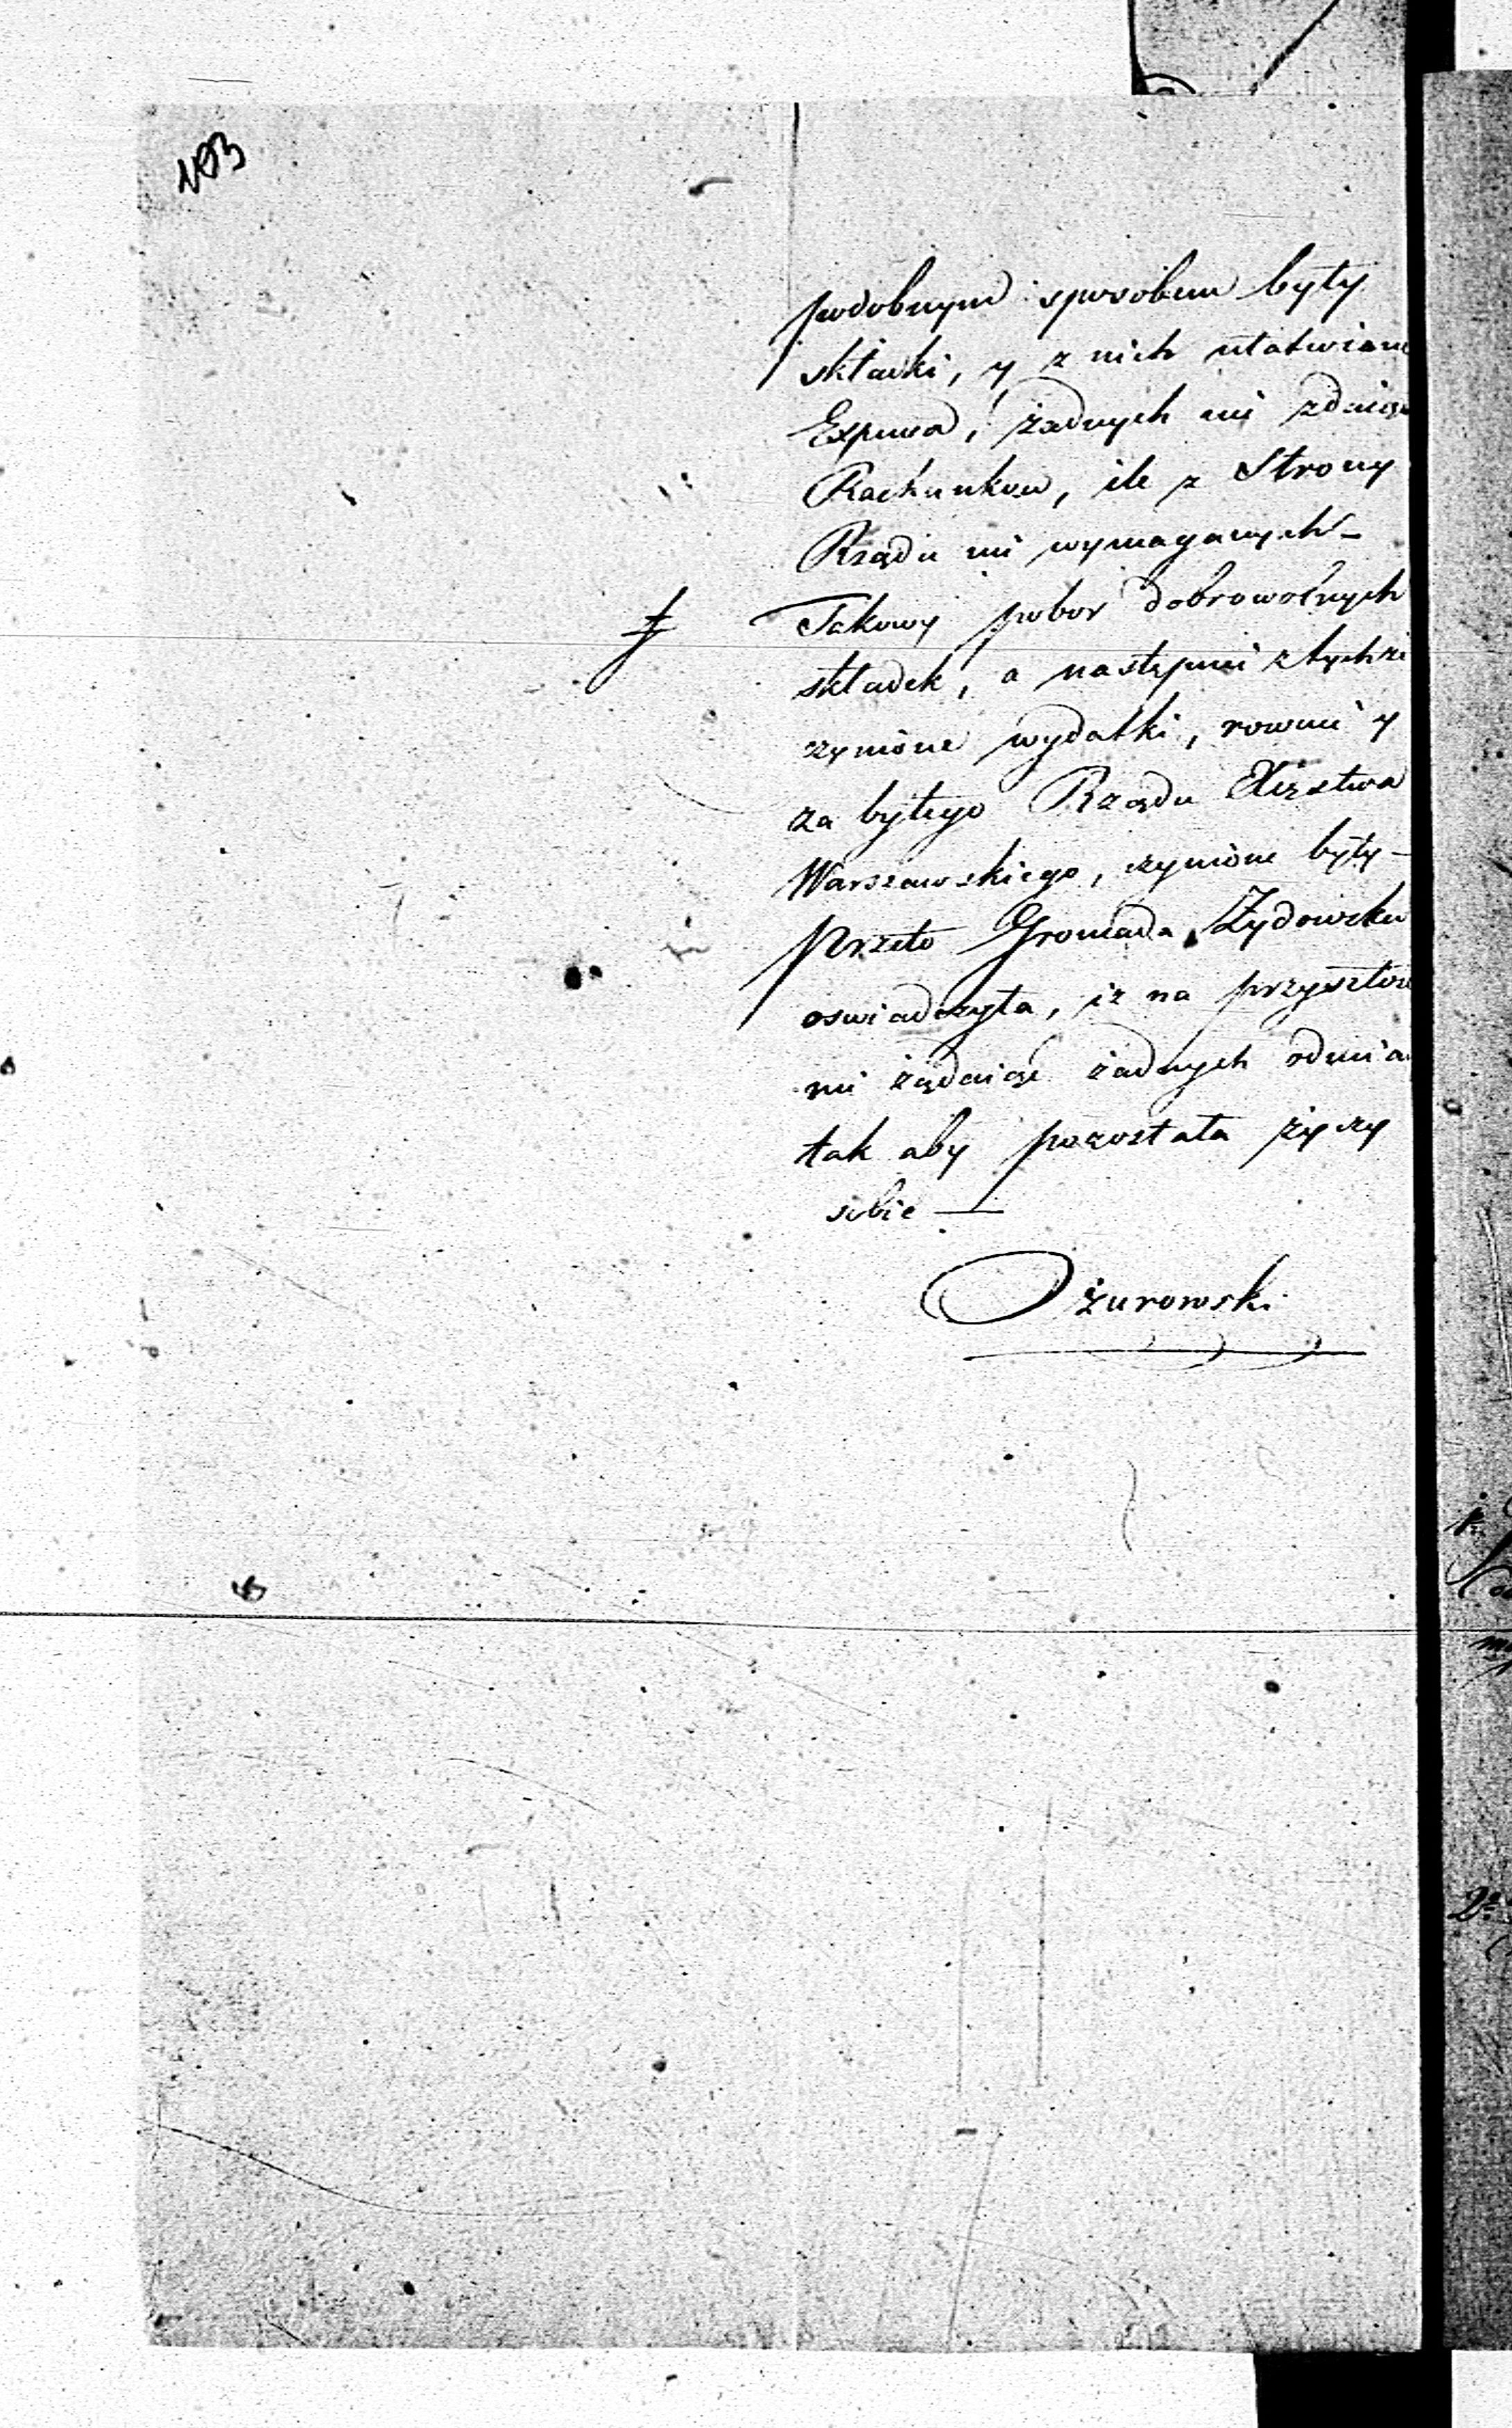 103
podobnym sposobem były
składki, y z nich ułatwiane
Expensa, żadnych nie zdaiąc
Rachunkow, ile z Strony
Rządu nie wymaganych –
Takowy pobor dobrowolnych
składek, a następnie z tychże
czynione wydatki, rownie y
za byłego Rządu Xięstwa
Warszawskiego, czynione były –
przeto Gromada Żydowska
oswiadczyła, iz na przyszłosc
nie żądaiąc żadnych odmian
tak aby pozostała życzy
sobie —
Ożurowski